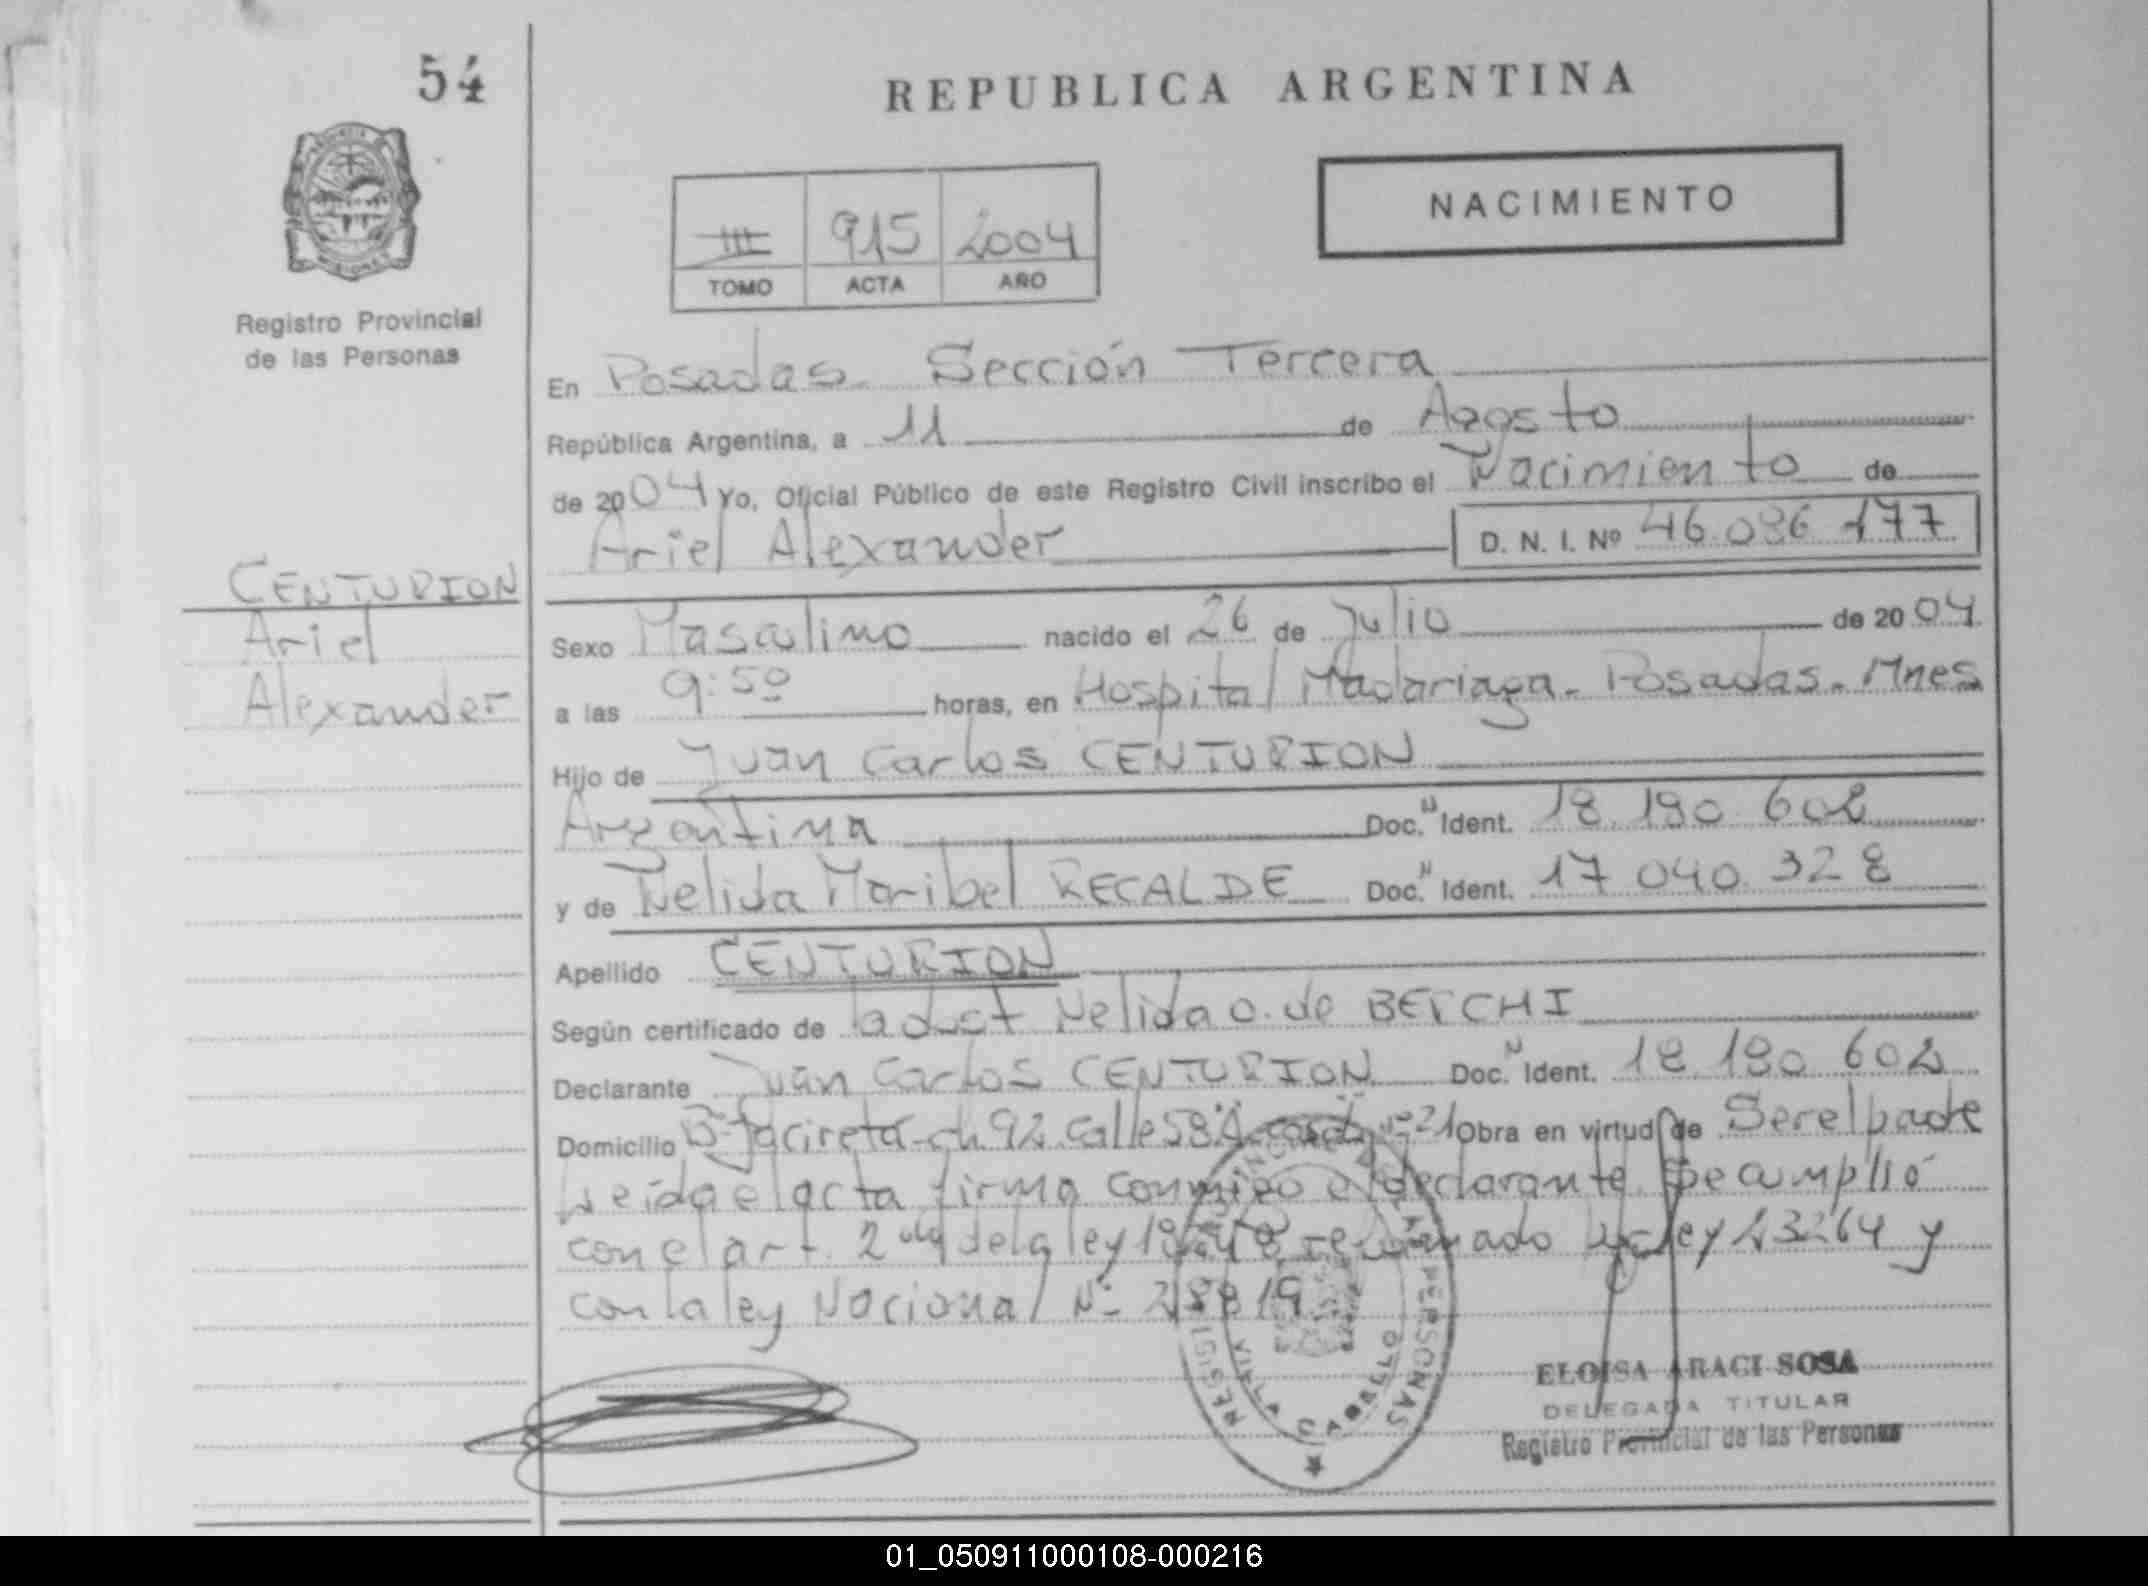 54
REPUBLICA ARGENTINA
NACIMIENTO
III 915 2004
TOMO ACTA AÑO
Registro Provincial
de las Personas
En Posadas. Sección Tercera
República Argentina, a 11 de Agosto
de 2004 Yo, Oficial Público de este Registro Civil inscribo el Nacimiento de
Ariel Alexander D. N. I. Nº 46.086 177
CENTURION
Ariel
Alexander
Sexo Masculino nacido el 26 de Julio de 2004
a las 9:50 horas, en Hospital Madariaga - Posadas - Mnes
Hijo de Juan Carlos CENTURION
Argentina Doc. N Ident. 18.180.602
y de Nelida Maribel RECALDE Doc. N Ident. 17 040 328
Apellido CENTURION
Según certificado de la obst Nelida O. de BETCHI
Declarante Juan Carlos CENTURION Doc. N Ident. 18 180 602
Domicilio Bº Jacireta - ch 92 calle 58 A casa nº 21 Obra en virtud de Ser el padre
Leida el acta firma conmigo el declarante. Se cumplió
con el art. 2 de la ley 18248 ley 23264 y
con la ley Nacional Nº
REGISTRO PERSONAS
VILLA CABELLO
ELOISA ARACI SOSA
DELEGADA TITULAR
Registro Provincial de las Personas
01_050911000108-000216